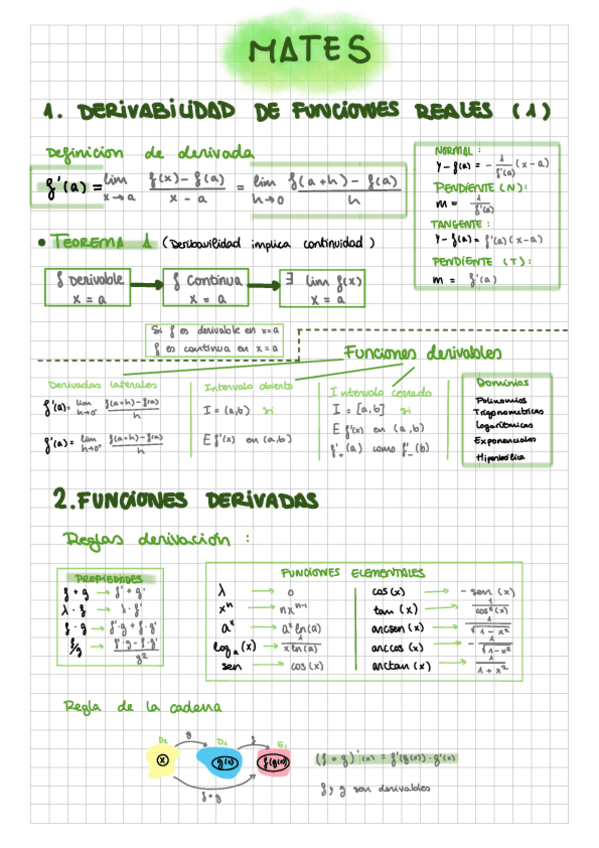 MATES
1. DERIVABILIDAD DE FUNCIONES REALES (1)
Definicion de derivada
f'(a) = lim x→a (f(x) - f(a)) / (x - a) = lim h→0 (f(a+h) - f(a)) / h
NORMAL:
y - f(a) = - 1/f'(a) (x - a)
PENDIENTE (N):
m = 1/f'(a)
TANGENTE:
y - f(a) = f'(a) (x - a)
PENDIENTE (T):
m = f'(a)
• TEOREMA 1 (Derivabilidad implica continuidad)
f Derivable x = a → f Continua x = a → ∃ lim f(x) x = a
Si f es derivable en x=a
f es continua en x=a
Funciones derivables
Derivadas laterales
f'(a) = lim h→0+ (f(a+h) - f(a)) / h
f'(a) = lim h→0- (f(a+h) - f(a)) / h
Intervalo abierto
I = (a,b) si
E f'(x) en (a,b)
Intervalo cerrado
I = [a,b] si
E f'(x) en (a,b)
f'+(a) como f'-(b)
Dominios
Polinomios
Trigonometricas
Logarítmicas
Exponenciales
Hiperbólica
2. FUNCIONES DERIVADAS
Reglas derivación:
PROPIEDADES
f + g → f' + g'
λ · f → λ · f'
f · g → f'·g + f·g'
f/g → (f'·g - f·g') / g²
FUNCIONES ELEMENTALES
λ → 0
xⁿ → nxⁿ⁻¹
aˣ → aˣ ln(a)
logₐ(x) → 1 / (x ln(a))
sen → cos(x)
cos(x) → - sen (x)
tan (x) → 1 / cos²(x)
arcsen (x) → 1 / √(1 - x²)
arccos (x) → - 1 / √(1 - x²)
arctan (x) → 1 / (1 + x²)
Regla de la cadena
g
f
x
g(x)
f(g(x))
f∘g
(f ∘ g)'(x) = f'(g(x)) · g'(x)
f y g son derivables